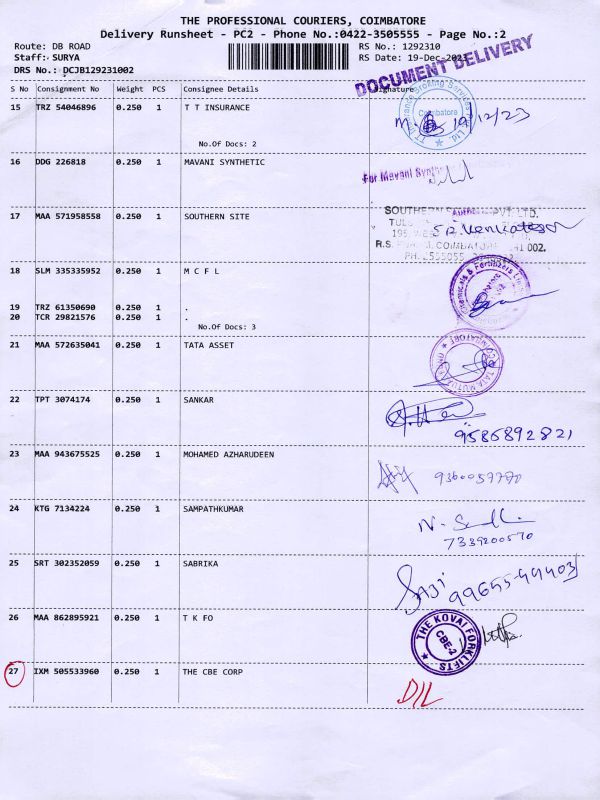 THE PROFESSIONAL COURIERS, COIMBATORE
Delivery Runsheet - PC2 - Phone No.:0422-3505555 - Page No.:2
Route: DB ROAD RS No.: 1292310
Staff: SURYA RS Date: 19-Dec-2023
DRS No.: DCJB129231002
DOCUMENT DELIVERY
S No Consignment No Weight PCS Consignee Details Signature
15 TRZ 54046896 0.250 1 T T INSURANCE
TT Insurance Broking Services Ltd. Coimbatore
19/12/23
No.Of Docs: 2
16 DDG 226818 0.250 1 MAVANI SYNTHETIC
For Mavani Synth
17 MAA 571958558 0.250 1 SOUTHERN SITE
SOUTHERN PVT. LTD.
195, WEST
R.S. COIMBATORE 002.
PH.
18 SLM 335335952 0.250 1 M C F L
Chemicals & Fertilizers
19 TRZ 61350690 0.250 1 .
20 TCR 29821576 0.250 1 .
No.Of Docs: 3
21 MAA 572635041 0.250 1 TATA ASSET
TATA MUTUAL FUND COIMBATORE
22 TPT 3074174 0.250 1 SANKAR
9586892821
23 MAA 943675525 0.250 1 MOHAMED AZHARUDEEN
9360059770
24 KTG 7134224 0.250 1 SAMPATHKUMAR
7339200570
25 SRT 302352059 0.250 1 SABRIKA
SAJI 99655-99403
26 MAA 862895921 0.250 1 T K FO
THE KOVAI FORKLIFTS
CBE-2
27 IXM 505533960 0.250 1 THE CBE CORP
D/L